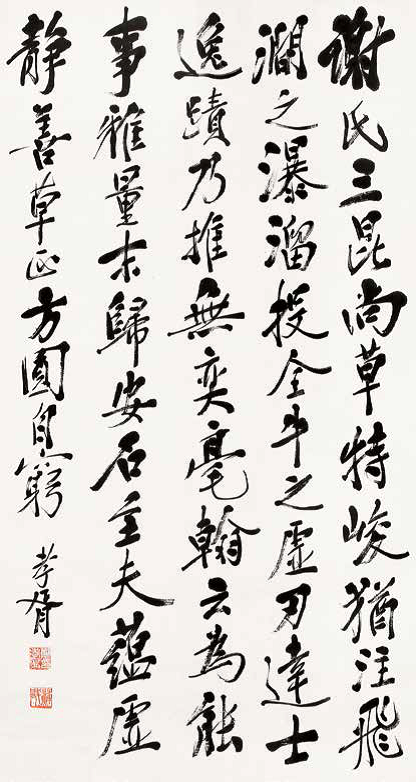 謝氏三昆尚草特峻猶注飛
澗之瀑溜投全牛之虛刃達士
逸蹟乃推無奕毫翰云為能
事雅量末歸安石主夫蘊虛
靜善草正方圓自窮 孝胥